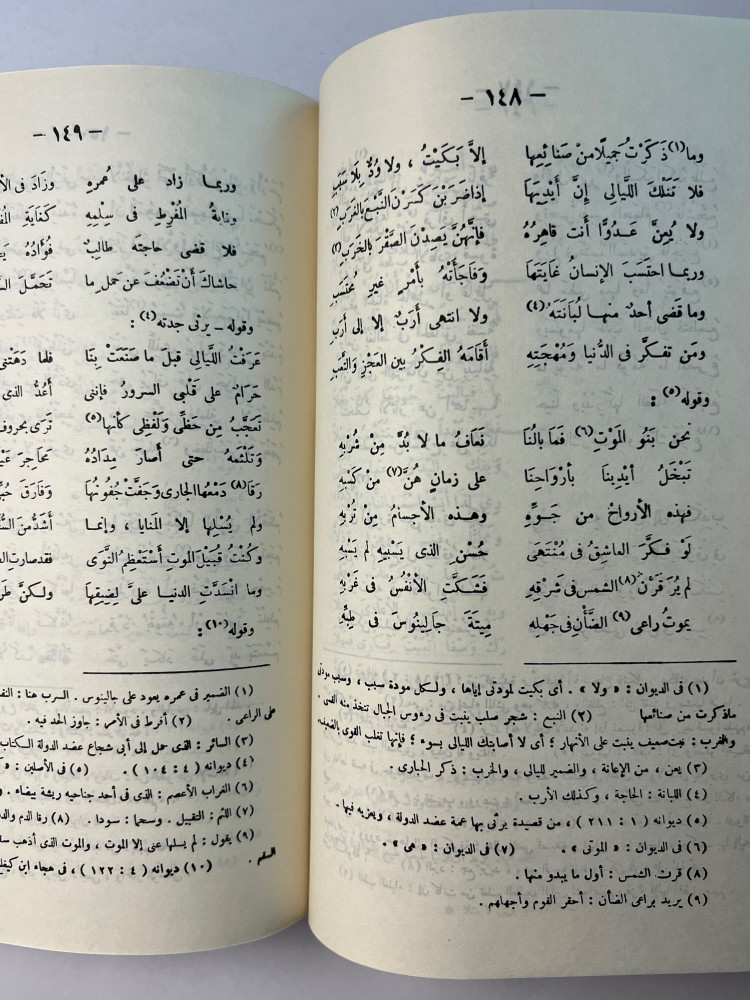 — ١٤٨ —
وما(١) ذَكَرْتُ جَميلًا مِنْ صَنائِعِها إلاَّ بَكَيْتُ ، ولا وُدٌّ بِلا سَبَبِ
فلا تَنَلْكَ اللَّيالى إنَّ أَيْدِيَهَا إذا ضَرَبْنَ كَسَرْنَ النَّبْعَ بالغَرَبِ(٢)
ولا يُعِنَّ عَــدُوًّا أنت قاهِرُهُ فإنَّهُنَّ يَصِدْنَ الصَّقْرَ بالخَرَبِ(٣)
وربما احتَسَبَ الإنسانُ غَايَتَهَا وَفَاجَأَتْهُ بأَمْرٍ غيرِ مُحْتَسَبِ
وما قَضى أحدٌ منهـا لُبَانَتَهُ(٤) ولا انتهى أَرَبٌ إلا إلى أَرَبِ
ومَن تفكَّرَ فى الدُّنيا وَمُهْجَتِهِ أقَامَهُ الفِكْرُ بين العَجْزِ والتَّعَبِ
وقوله(٥) :
نحن بَنُو المَوْتِ(٦) فَمَا بالُنَا نَعَافُ ما لا بُدَّ مِنْ شُرْبِهِ
تَبْخَلُ أيْدِينَا بأرْوَاحِنَا على زمانٍ هُنَّ(٧) مِنْ كَسْبِهِ
فهذه الأرْواحُ من جَــوِّهِ وهــذه الأجسامُ مِنْ تُرْبِهِ
لَوْ فَـكَّرَ العاشِقُ فى مُنْتَهَى حُسْنِ الذى يَسْبِيهِ لم يَسْبِهِ
لم يُرَ قَرْنُ(٨) الشمسِ فى شَرْقِهِ فَشَكَّتِ الأنْفُسُ فى غَرْبِهِ
يموتُ راعى(٩) الضَّأْنِ فى جَهْلِهِ مِيتَةَ جَالِينُوسَ فى طِبِّهِ
(١) فى الديوان : « ولا » . أى بكيت لمودتى إياها ، ولـكل مودة سبب ، وسبب مودتى
ماذكرت من صنائعها . (٢) النبع : شجر صلب ينبت فى رءوس الجبال تتخذ منه القسى .
والغرب : نبت ضعيف ينبت على الأنهار ؛ أى لا أصابتك الليالى بسوء ؛ فإنها تغلب القوى بالضعيف
(٣) يعن ، من الإعانة ، والضمير لليالى ، والخرب : ذكر الحبارى .
(٤) اللبانة : الحاجة ، وكذلك الأرب .
(٥) ديوانه ( ١ : ٢١١ ) ، من قصيدة يرثى بها عمة عضد الدولة ، ويعزيه فيها .
(٦) فى الديوان : « الموتى » . (٧) فى الديوان : « هى » .
(٨) قرن الشمس : أول ما يبدو منها .
(٩) يريد براعى الضأن : أحقر القوم وأجهلهم .
— ١٤٩ —
وربمـا زاد على عُمرِهِ وزَادَ فى
وغايةُ المُفْرِطِ فى سِلْمِهِ كَغَايَةِ
فلا قضى حاجتَه طالبٌ فُؤَادُهُ
حاشاكَ أنْ تَضْعُفَ عن حَملِ ما تَحَمَّلَ
وقوله ــ يرثى جدته(٤) :
عَرَفْتُ اللَّيالى قبلَ ما صَنَعَتْ بِنَا فلما دَهَتْنى
حَرَامٌ على قَلْبى السرورُ فإننى أَعُدُّ الذى
تَعَجَّبُ مِن حَظِّى وَلَفْظِى كأنها(٥) تَرَى بحروف
وَتَلْثَمُه حتى أَصَارَ مِدَادُهُ مَحَاجِرَ
رَقَا(٨) دَمْعُها الجارى وَجَفَّتْ جُفُونُها وَفَارَقَ
ولم يُسْلِها إلا المَنايا ، وإنمـا أشَدُّ مِنَ
وكنْتُ قُبَيْلَ الموتِ أَسْتَعْظِمُ النَّوَى فقد صارتِ
وما انْسَدَّتِ الدنيـا علىَّ لِضِيقِهَا ولـكنَّ
وقوله(١٠) :
(١) الضمير فى عمره يعود على جالينوس . السرب هنا :
على الراعى . (٢) أفرط فى الأمر : جاوز الحد فيه .
(٣) السائر : الذى حمل إلى أبى شجاع عضد الدولة الـكتاب
(٤) ديوانه ( ٤ : ١٠٤ ) . (٥) فى الأصلين :
(٦) الغراب الأعصم : الذى فى أحد جناحيه ريشة بيضاء .
(٧) اللثم : التقبيل . وسحما : سودا . (٨) رقا الدم
(٩) يقول : لم يسلها عنى إلا الموت ، والموت الذى أذهب
السقم .
(١٠) ديوانه ( ٤ : ١٢٢ ) ، فى هجاء ابن